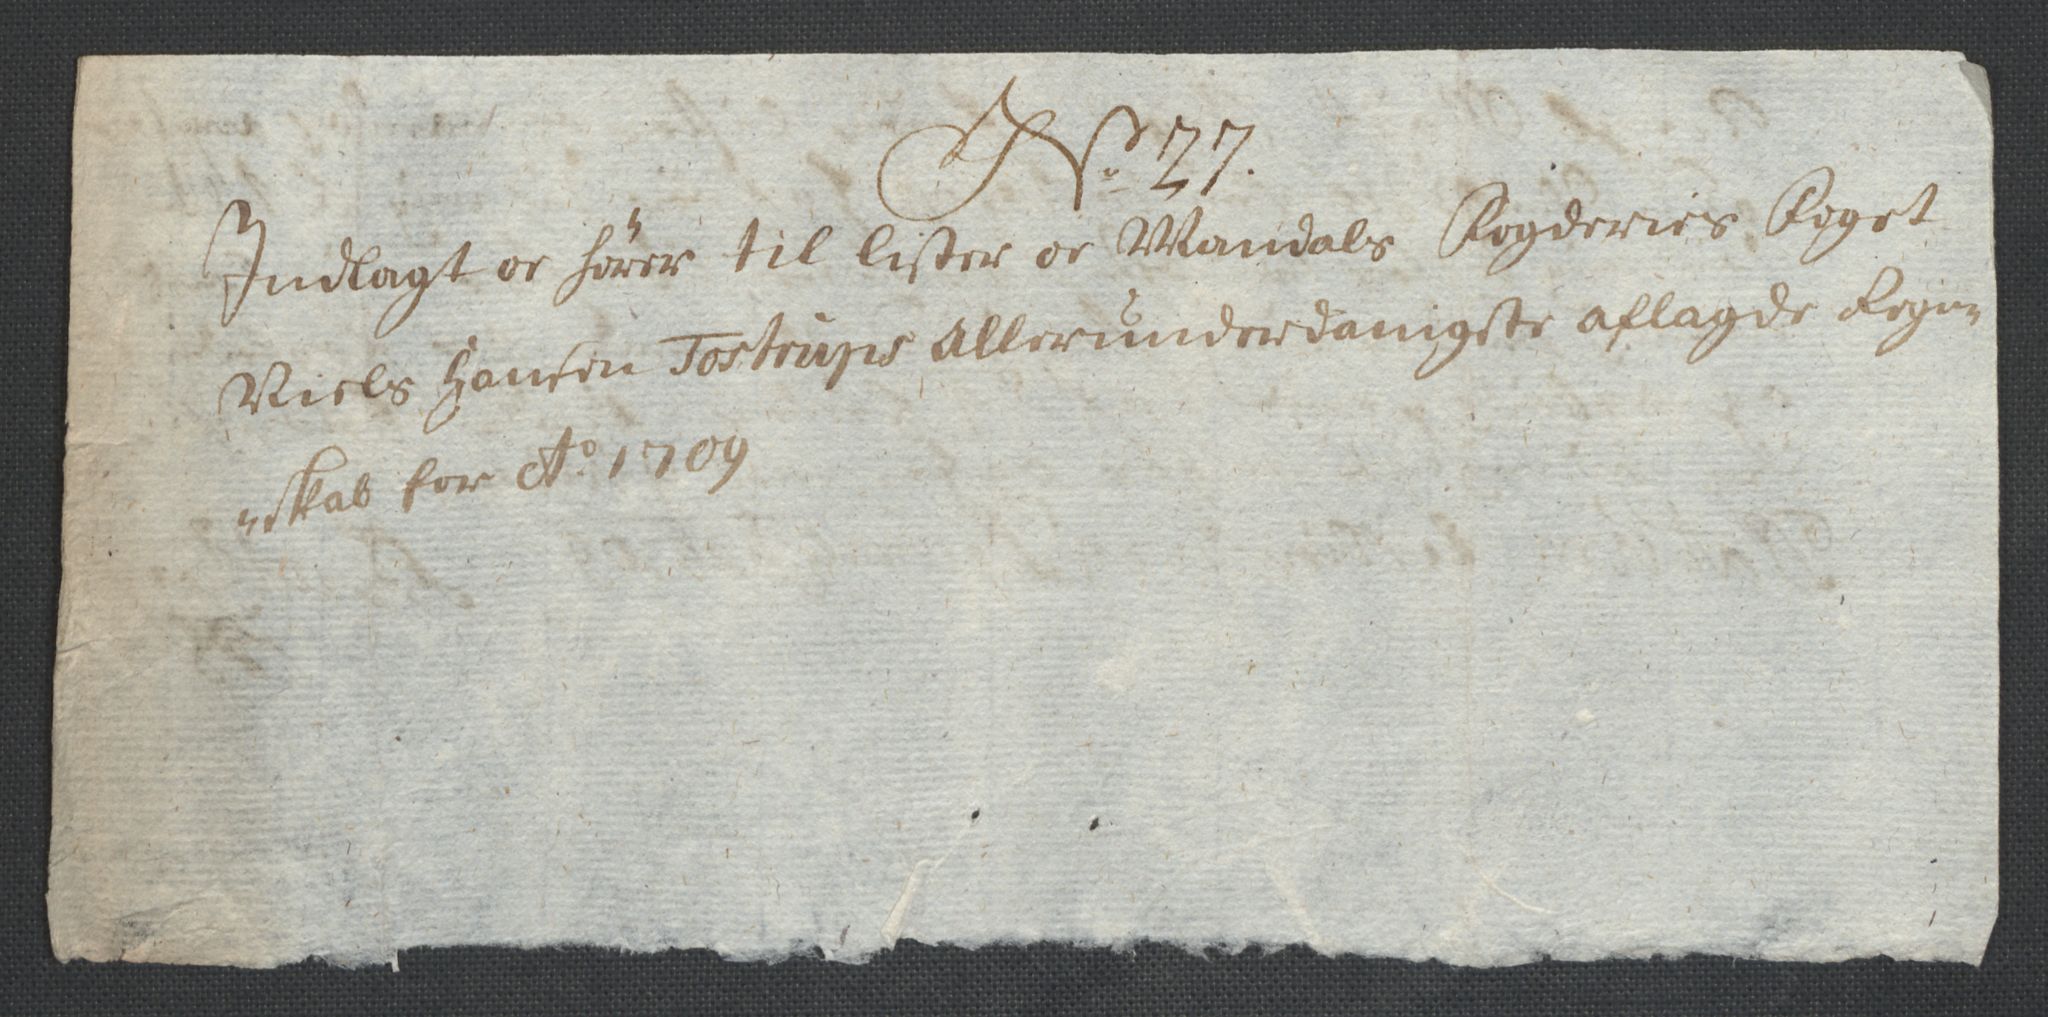 No. 27.
Indlagt oc hörer til Lister oc Mandals Fogderies Foget
Niels Hansen Tostrups Allerunderdanigste aflagde Regen=
=skab for Ao. 1709